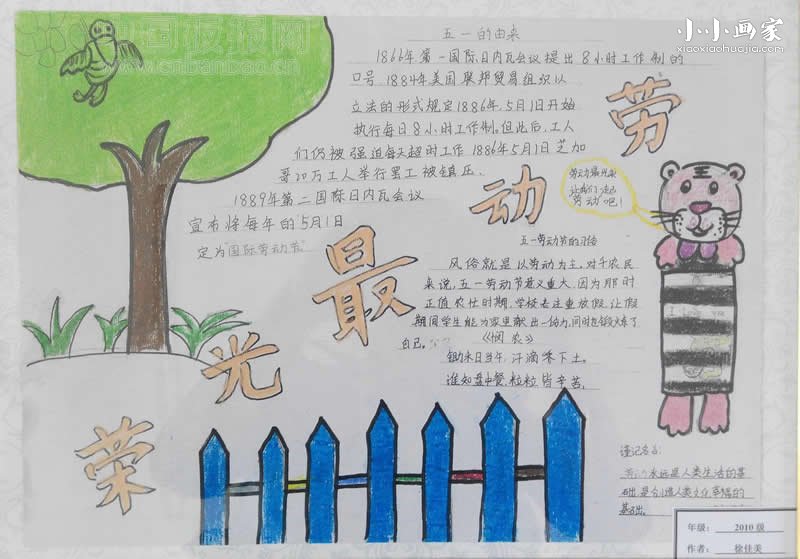 小小画家
xiaoxiaohuajia.com
中国板报网
www.cnbanbao.cn
五一的由来
1866年第一国际日内瓦会议提出8小时工作制的
口号 1884年美国联邦贸易组织以
立法的形式规定1886年5月1日开始
执行每日8小时工作制。但此后,工人
们仍被强迫每天超时工作 1886年5月1日芝加
哥20万工人举行罢工被镇压.
1889年第二国际日内瓦会议
宣布将每年的5月1日
定为"国际劳动节"
劳动最光荣
劳动最光荣
让我们
劳动吧!
王
五一劳动节的习俗
风俗就是以劳动为主。对于农民
来说,五一劳动节意义重大,因为那时
正值农忙时期,学校专注重放假,让假
期间学生能为家里献出一份力,同时也锻炼了
自己。
《悯农》
锄禾日当午,汗滴禾下土。
谁知盘中餐,粒粒皆辛苦。
谨记名言:
劳动永远是人类生活的基
础,是创造人类文化幸福的
基础。
年级: 2010级
作者: 徐佳美